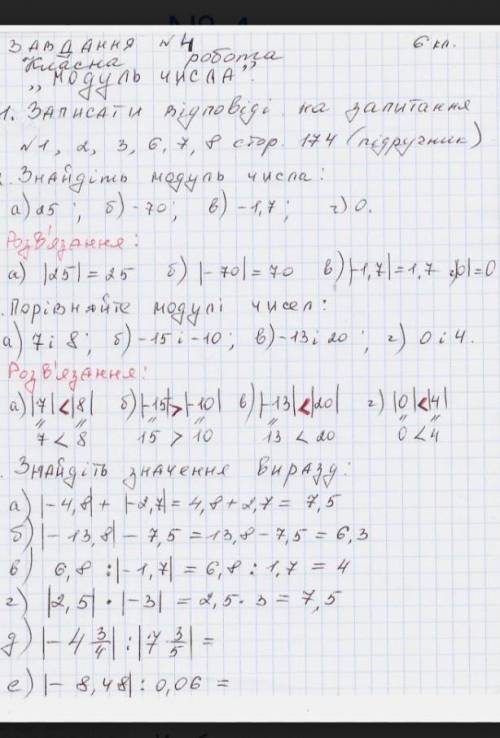 Завдання №4 6 кл.
Класна робота
„Модуль числа".
1. Записати відповіді на запитання
№1, 2, 3, 6, 7, 8 стор. 174 (підручник)
. Знайдіть модуль числа:
а) 25; б) -70; в) -1,7; г) 0.
Розв'язання:
а) |25| = 25 б) |-70| = 70 в) |-1,7| = 1,7 г) |0| = 0
. Порівняйте модулі чисел:
а) 7 і 8; б) -15 і -10; в) -13 і 20; г) 0 і 4.
Розв'язання:
а) |7| < |8| б) |-15| > |-10| в) |-13| < |20| г) |0| < |4|
7 < 8 15 > 10 13 < 20 0 < 4
. Знайдіть значення виразу:
а) |-4,8| + |-2,7| = 4,8 + 2,7 = 7,5
б) |-13,8| - 7,5 = 13,8 - 7,5 = 6,3
в) 6,8 : |-1,7| = 6,8 : 1,7 = 4
г) |2,5| · |-3| = 2,5 · 3 = 7,5
д) |-4 3/4| : |7 3/5| =
е) |-8,48| : 0,06 =